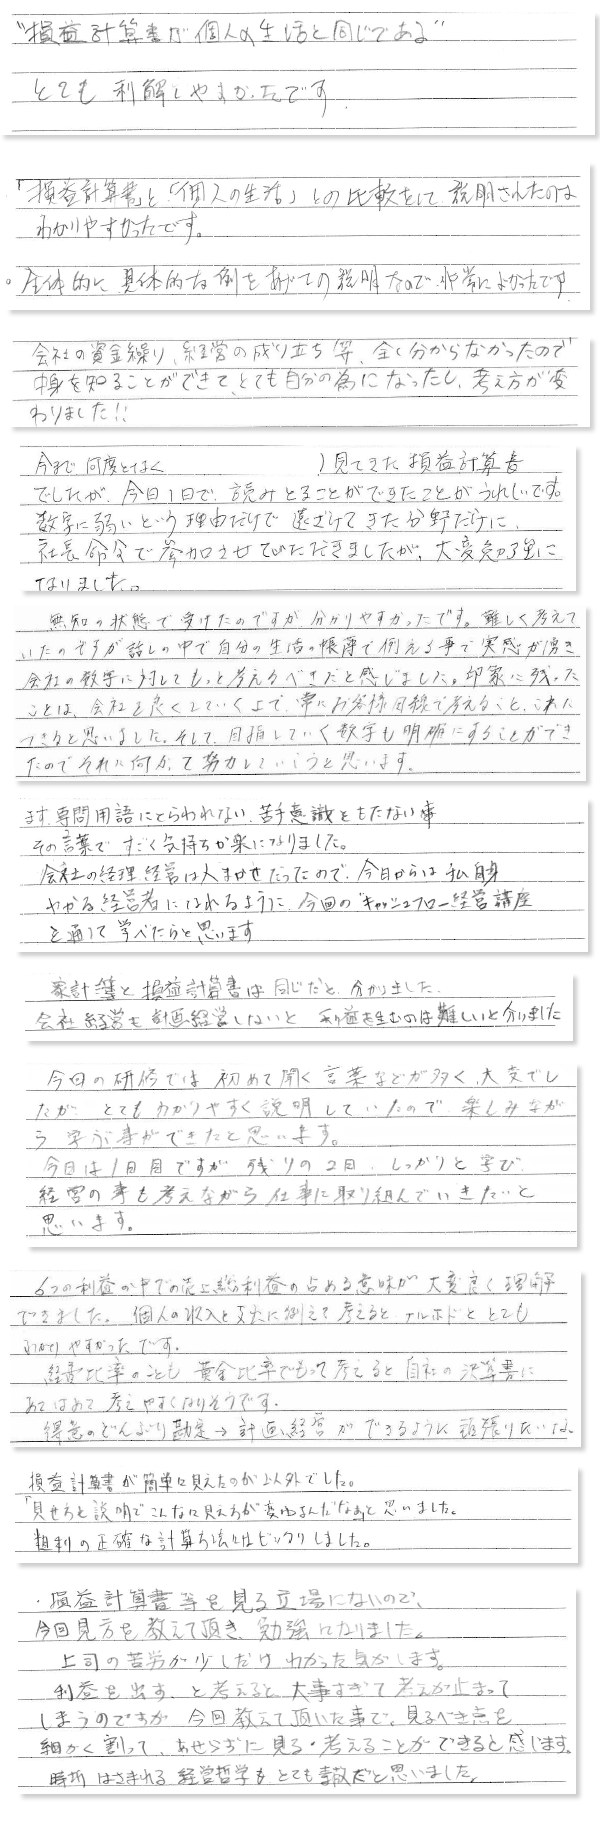 "損益計算書が個人の生活と同じである"
とても利解しやすかったです。
「損益計算書」と「個人の生活」との比較をして説明されたのは
わかりやすかったです。
。全体的に具体的な例をあげての説明なので非常によかったです
会社の資金繰り、経営の成り立ち等、全く分からなかったので
中身を知ることができて、とても自分の為になったし、考え方が変
わりました!!
今まで何度となく )見てきた損益計算書
でしたが、今日1日で、読みとることができたことがうれしいです。
数字に弱いという理由だけで遠ざけてきた分野だけに、
社長命令で参加させていただきましたが、大変勉強に
なりました。
無知の状態で受けたのですが分かりやすかったです。難しく考えて
いたのですが話しの中で自分の生活の帳簿で例える事で実感が湧き
会社の数字に対してもっと考えるべきだと感じました。印象に残った
ことは、会社を良くしていく上で、常にお客様目線で考えること、これだ
できると思いました。そして、目指していく数字も明確にすることができ
たのでそれに向かって努力していこうと思います。
まず、専問用語にとらわれない、苦手意識をもたない事
その言葉ですごく気持ちが楽になりました。
会社の経理経営は人まかせだったので、今日からは私自身
わかる経営者になれるように、今回の"キャッシュフロー経営講座
を通して学べたらと思います
家計簿と損益計算書は同じだと、分かりました。
会社経営も計画経営しないと利益を生むのは難しいと分りました
今回の研修では初めて聞く言葉などが多く、大変でし
たがとてもわかりやすく説明していたので、楽しみなが
ら学ぶ事ができたと思います。
今日は1日目ですが残りの2日、しっかりと学び、
経営の事も考えながら仕事に取り組んでいきたいと
思います。
6つの利益の中での売上総利益の占める意味が大変良く理解
できました。個人の収入と支出に例えて考えるとナルホドととても
わかりやすかったです。
経費比率のことも黄金比率でもって考えると自社の決算書に
あてはめて考えやすくなりそうです。
得意のどんぶり勘定→計画経営ができるように頑張りたいな。
損益計算書が簡単に見えたのが以外でした。
「見せ方と説明でこんなに見え方が変わるんだなあ」と思いました。
粗利の正確な計算方法にはビックリしました。
・損益計算書等を見る立場にないので、
今回見方を教えて頂き、勉強になりました。
上司の苦労が少しだけわかった気がします。
利益を出す、と考えると、大事すぎて考えが止まって
しまうのですが今回教えて頂いた事で、見るべき点を
細かく割って、あせらずに見る・考えることができると感じます。
時折はさまれる経営哲学もとても素敵だと思いました。